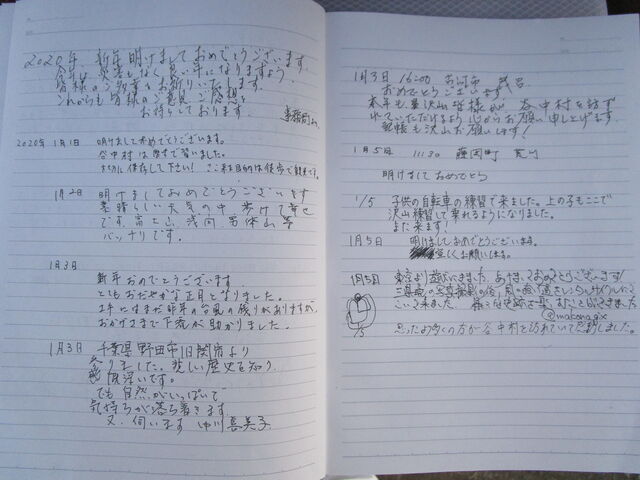 2020年、新年明けましておめでとうございます。
今年は災害もなく良い年になりますよう
皆様のご多幸をお祈りいたします。
これからも皆様のご意見ご感想を
お待ちしております
事務局
2020年 1月1日 明けましておめでとうございます。
谷中村は歴史で習いました。
大切に保存して下さい!
1月2日 明けましておめでとうございます
素晴らしい天気の中 歩けて幸せ
です。富士 浅間 男体山等
バッチリです。
1月3日
新年おめでとうございます
とてもおだやかな正月となりました。
まだ昨年の台風の残りがありますが、
おかげさまで下流が助かりました。
1月3日 千葉県野田市旧関宿より
参りました。悲しい歴史を知り、
感慨深いです。
でも自然がいっぱいで
気持ちが落ち着きます
又、伺います 中川 真美子
1月3日 16:00 古河市
おめでとうございます
本年も皆様が谷中村を訪ず
れていただけるよう心からお願い申し上げます。
記帳も沢山お願いします!
1月5日 11:30 藤岡町
明けましておめでとう
1/5 子供の自転車の練習で来ました。上の子もここで
沢山練習して乗れるようになりました。
また来ます!
1月5日 明けましておめでとうございます。
宜しくお願いします。
1月5日 東京より遊びにきました。あけましておめでとうございます!
@makonagix
1/5 思ったより多くの方が谷中村を訪れていて感動しました。